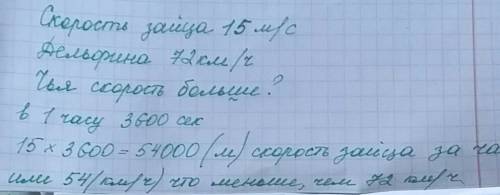 Скорость зайца 15 м/с
Дельфина 72 км/ч
Чья скорость больше?
в 1 часу 3600 сек
15 × 3600 = 54000 (м) скорость зайца за ча
или 54 (км/ч) что меньше, чем 72 км/ч